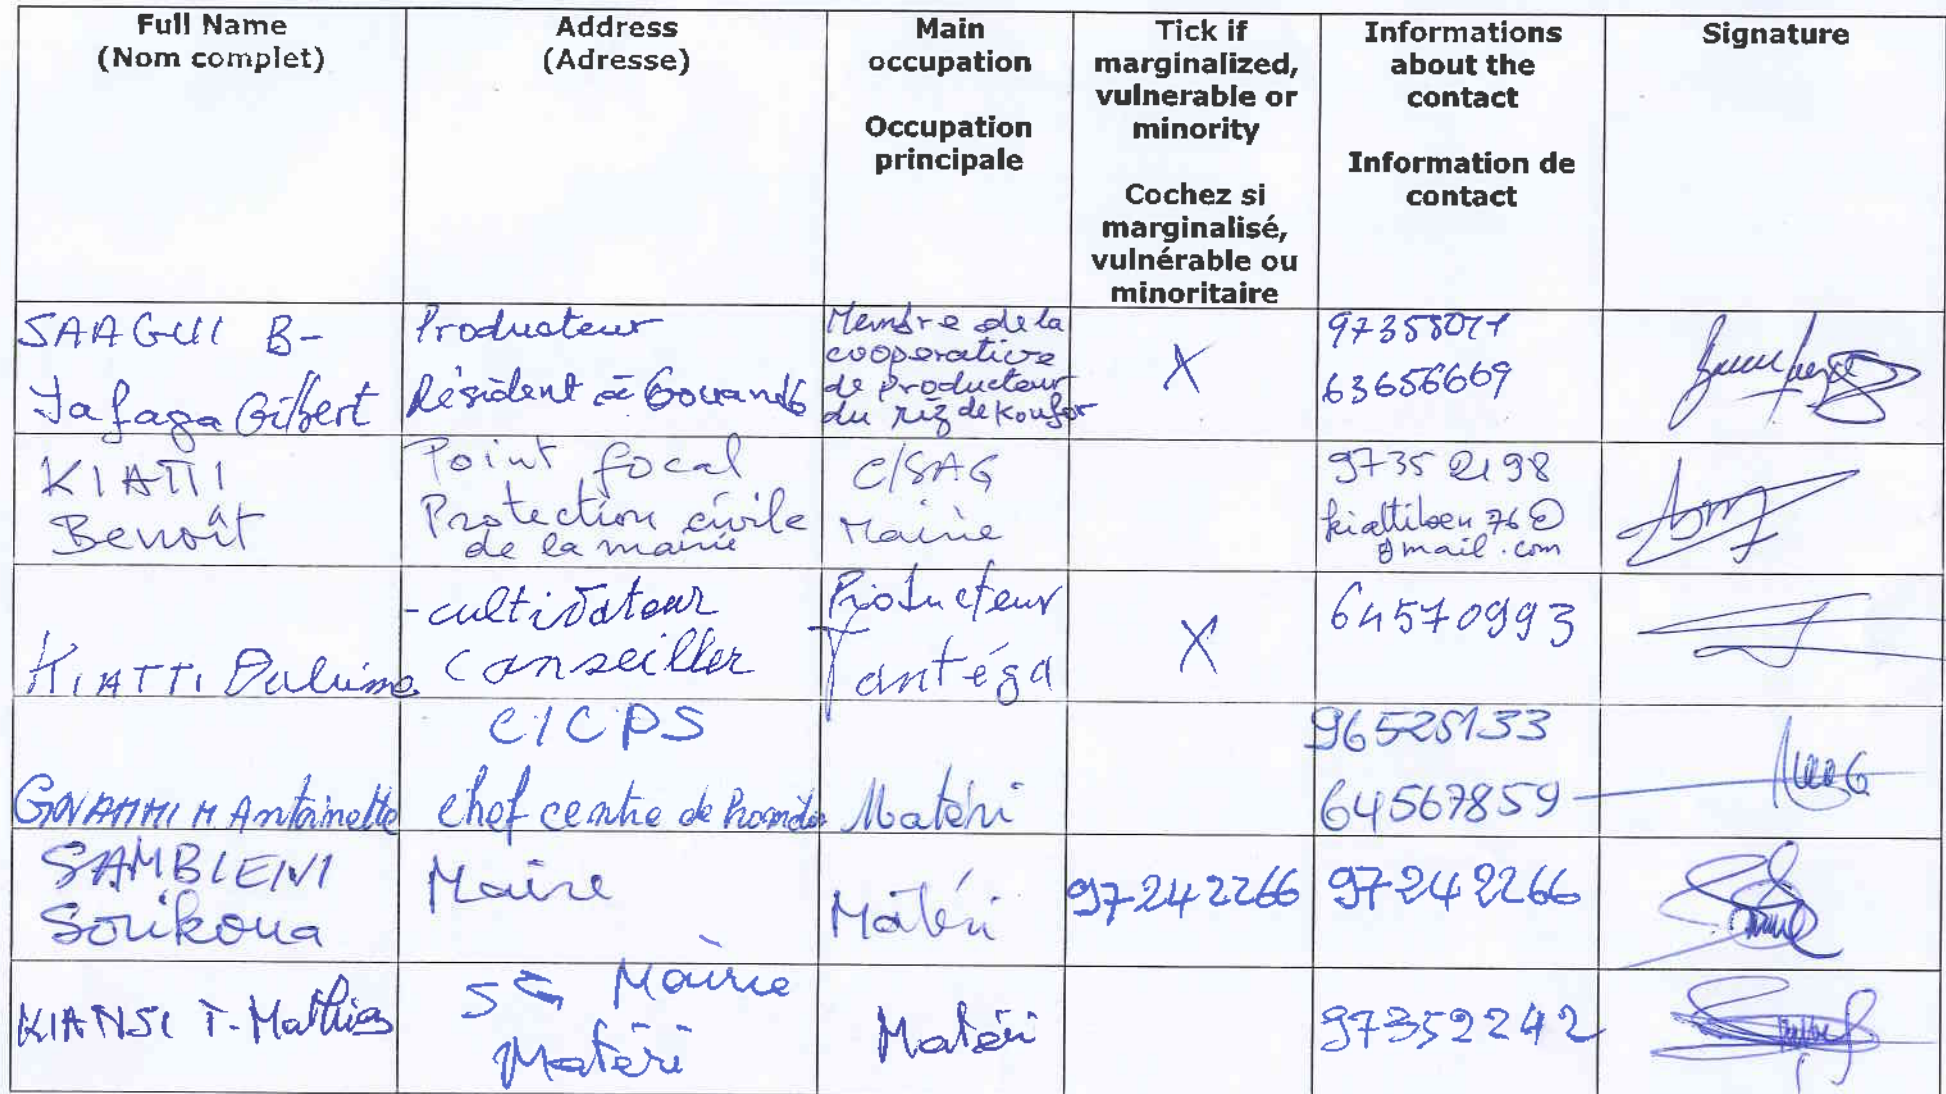 Full Name
(Nom complet)
Address
(Adresse)
Main
occupation
Occupation
principale
Tick if
marginalized,
vulnerable or
minority
Cochez si
marginalisé,
vulnérable ou
minoritaire
Informations
about the
contact
Information de
contact
Signature
SAAGUI B-
Gilbert
Producteur
Résident à
Membre de la
cooperative
de Producteur
du riz de Koufor
X
63656669
KIATTI
Benoît
Point focal
Protection civile
de la mairie
C/SAG
Mairie
97352198
kiattiben76@
gmail.com
KIATTI
-cultivateur
conseiller
Producteur
Tantéga
X
64570993
M Antoinette
C/CPS
chef centre de
Matéri
96525133
64567859
SAMBIENI
Sorikoua
Maire
Matéri
97242266
97242266
KIANSI T. Mathias
Mairie
Matéri
Matéri
97352242